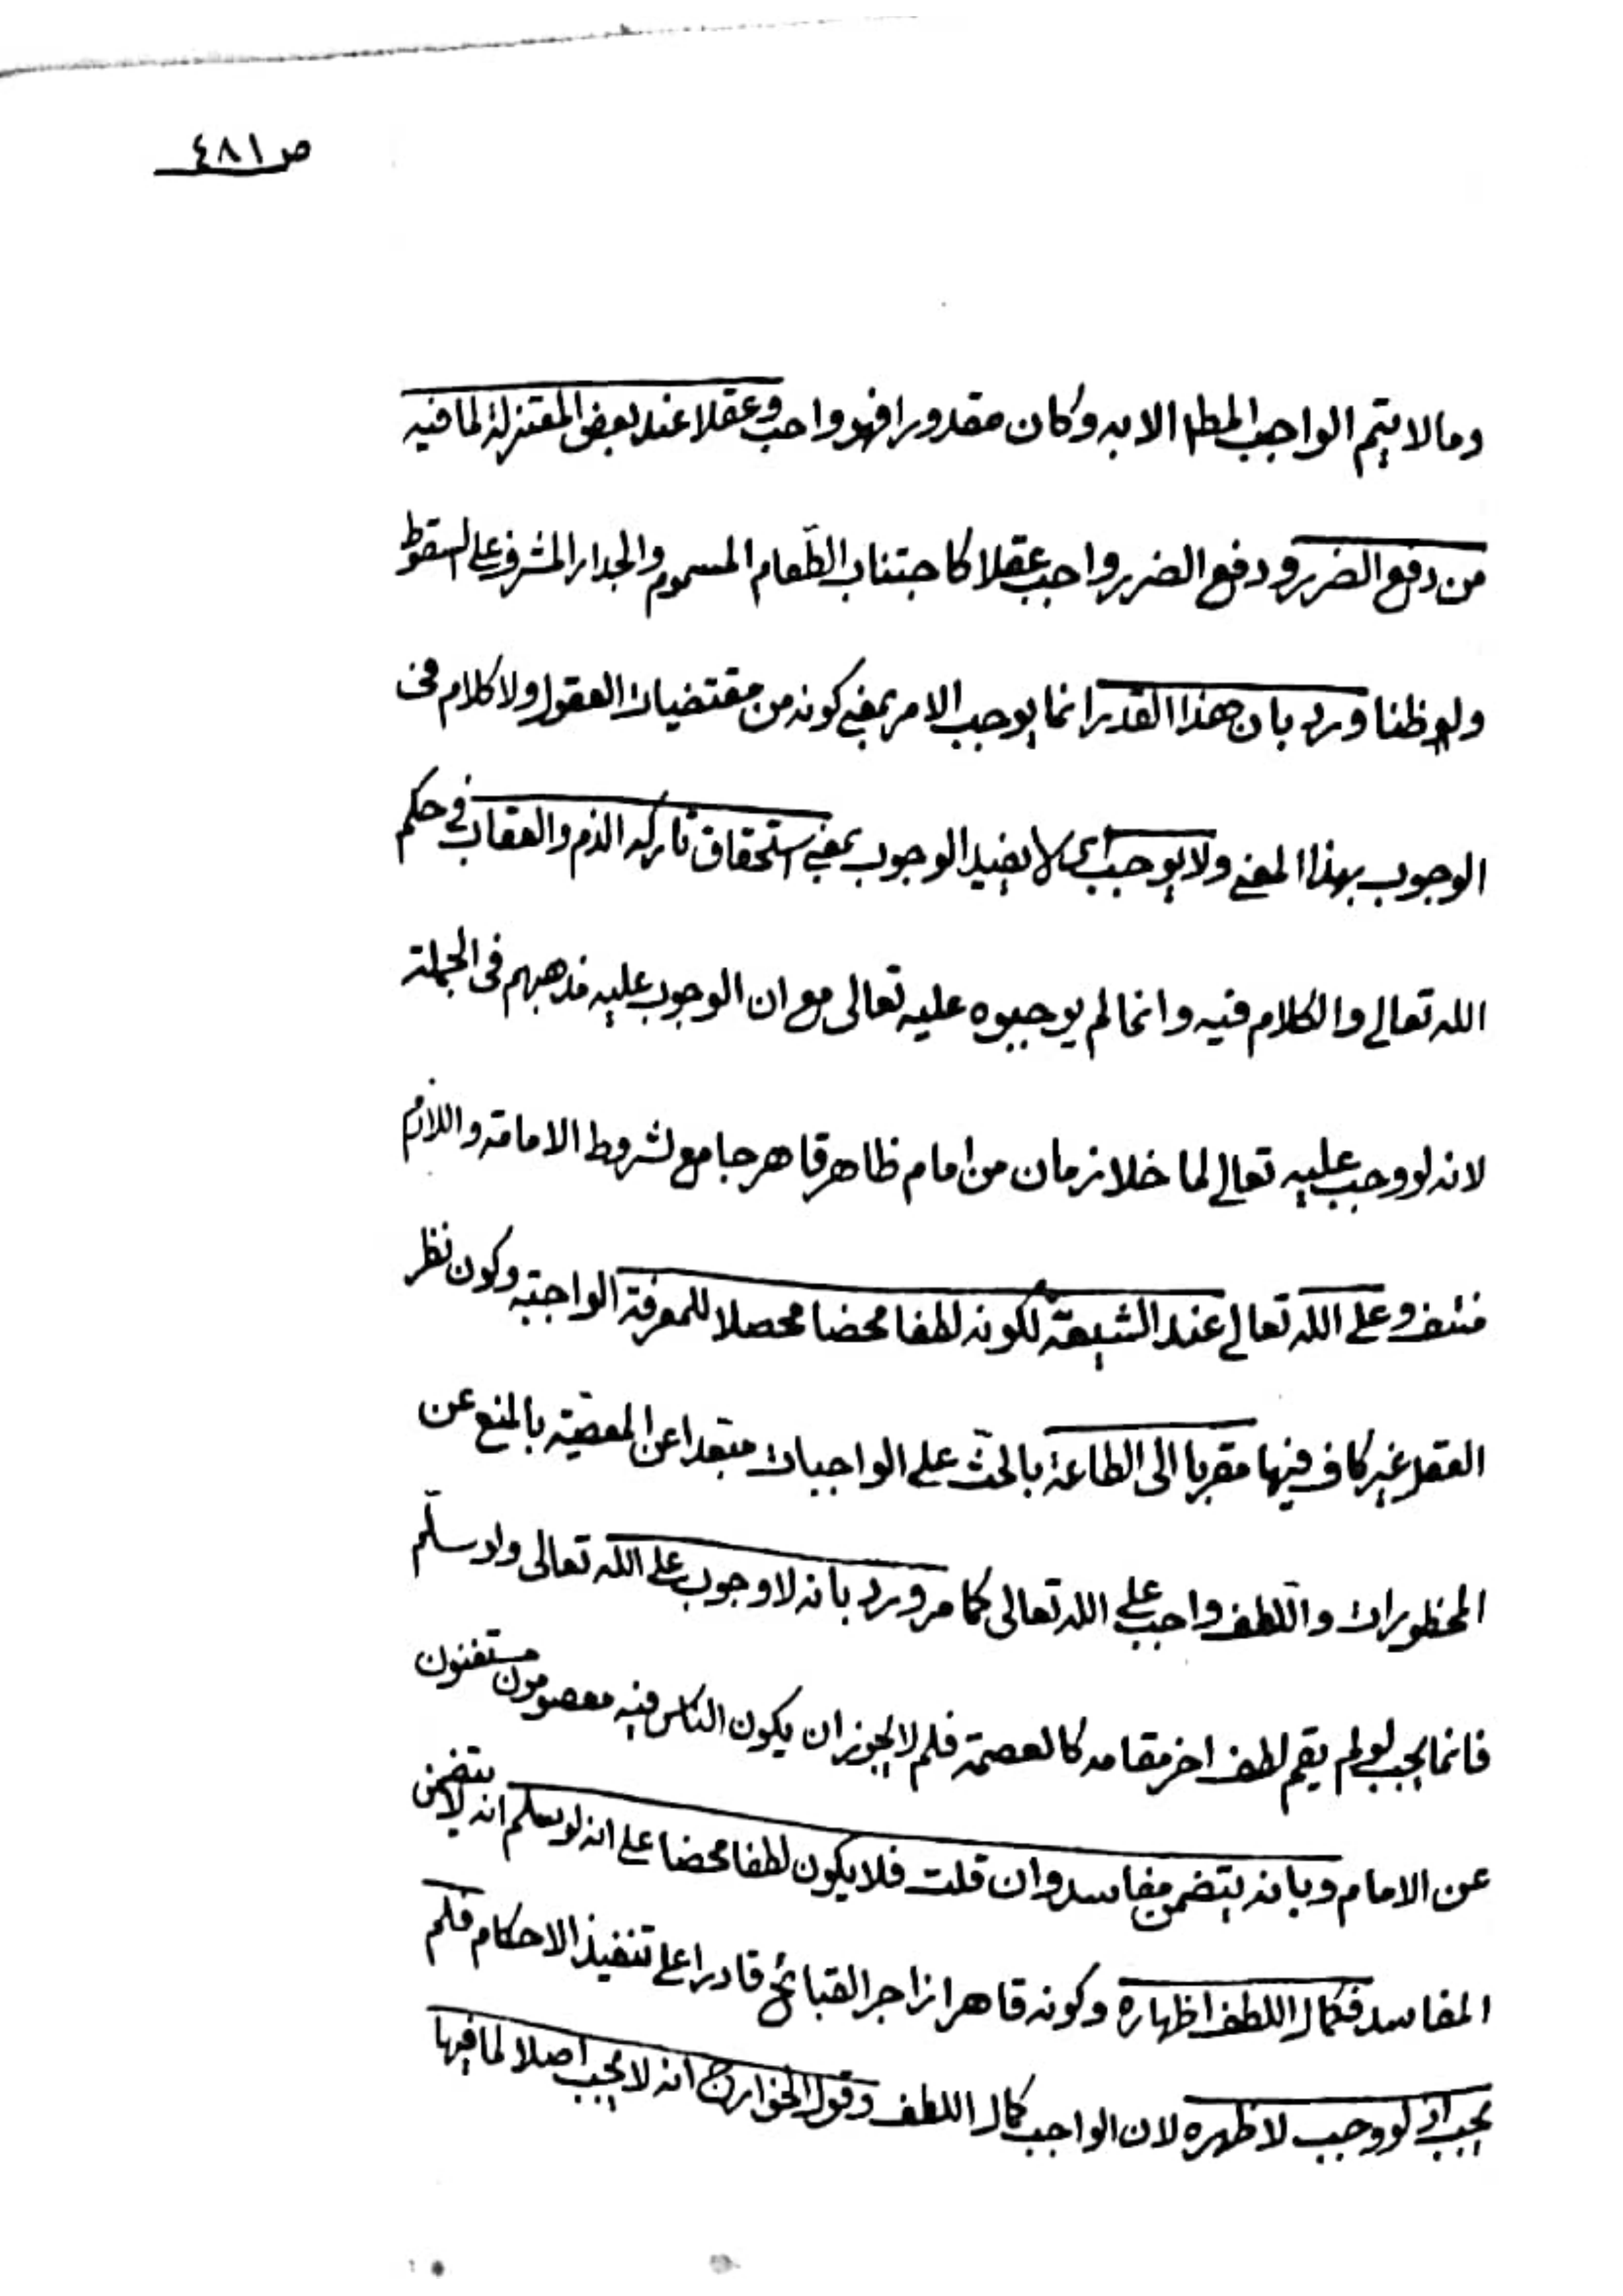 ص ٤٨١
وما لا يتم الواجب المطلق الا به وكان مقدورا فهو واجب وعقلا عند بعض المعتزلة لما فيه
من دفع الضرر ودفع الضرر واجب عقلا كاجتناب الطّعام المسموم والجدار المشرف على السقوط
ولو ظنا ورد بان هذا القدر انما يوجب الامر بمعنى كونه من مقتضيات العقول ولا كلام فى
الوجوب بهذا المعنى ولا يوجب اى لا يفيد الوجوب بمعنى استحقاق تاركه الذم والعقاب في حكم
الله تعالى والكلام فيه وانما لم يوجبوه عليه تعالى مع ان الوجوب عليه مذهبهم فى الجملة
لانه لو وجب عليه تعالى لما خلا زمان من امام ظاهر قاهر جامع لشروط الامامة واللازم
منتف وعلى الله تعالى عند الشيعة لكونه لطفا محضا محصلا للمعرفة الواجبة وكون نظر
العقل غير كاف فيها مقربا الى الطاعة بالحثّ على الواجبات مبعدا عن المعصية بالمنع عن
المحظورات واللّطف واجب على الله تعالى كما مر ورد بانه لا وجوب على الله تعالى ولو سلّم
فانما يجب لو لم يقم لطف اخر مقامه كالعصمة فلم لا يجوز ان يكون الناس فيه معصومون مستغنون
عن الامام وبانه يتضمن مفاسد وان قلت فلا يكون لطفا محضا على انه لو سلم انه لا يتضمن
المفاسد فكمال اللطف اظهاره وكونه قاهرا زاجر القبائح قادرا على تنفيذ الاحكام فلم
يجب اذ لو وجب لاظهره لان الواجب كمال اللطف وقول الخوارج انه لا يجب اصلا لما فيها